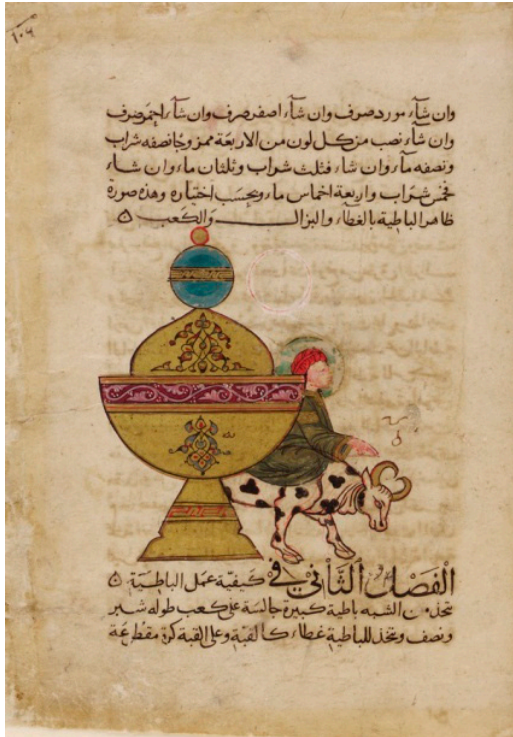 ١٠٤
وان شآء مورد صرف وان شآء اصفر صرف وان شآء احمر صرف
وان شآء نصب من كل لون من الاربعة ممزوجًا نصفه شراب
ونصفه مآء وان شاء فثلث شراب وثلثان مآء وان شاء
فخمس شراب واربعة اخماس مآء وبحسب اختياره وهذه صورة
ظاهر الباطية بالغطآء والبزال والكعب ٥
الفصل الثاني في كيفية عمل الباطية ٥
تتخذ من الشبه باطية كبيرة جالسة على كعب طوله شبر
ونصف ويتخذ للباطية غطآء كالقبة وعلى القبة كرة مقطعة